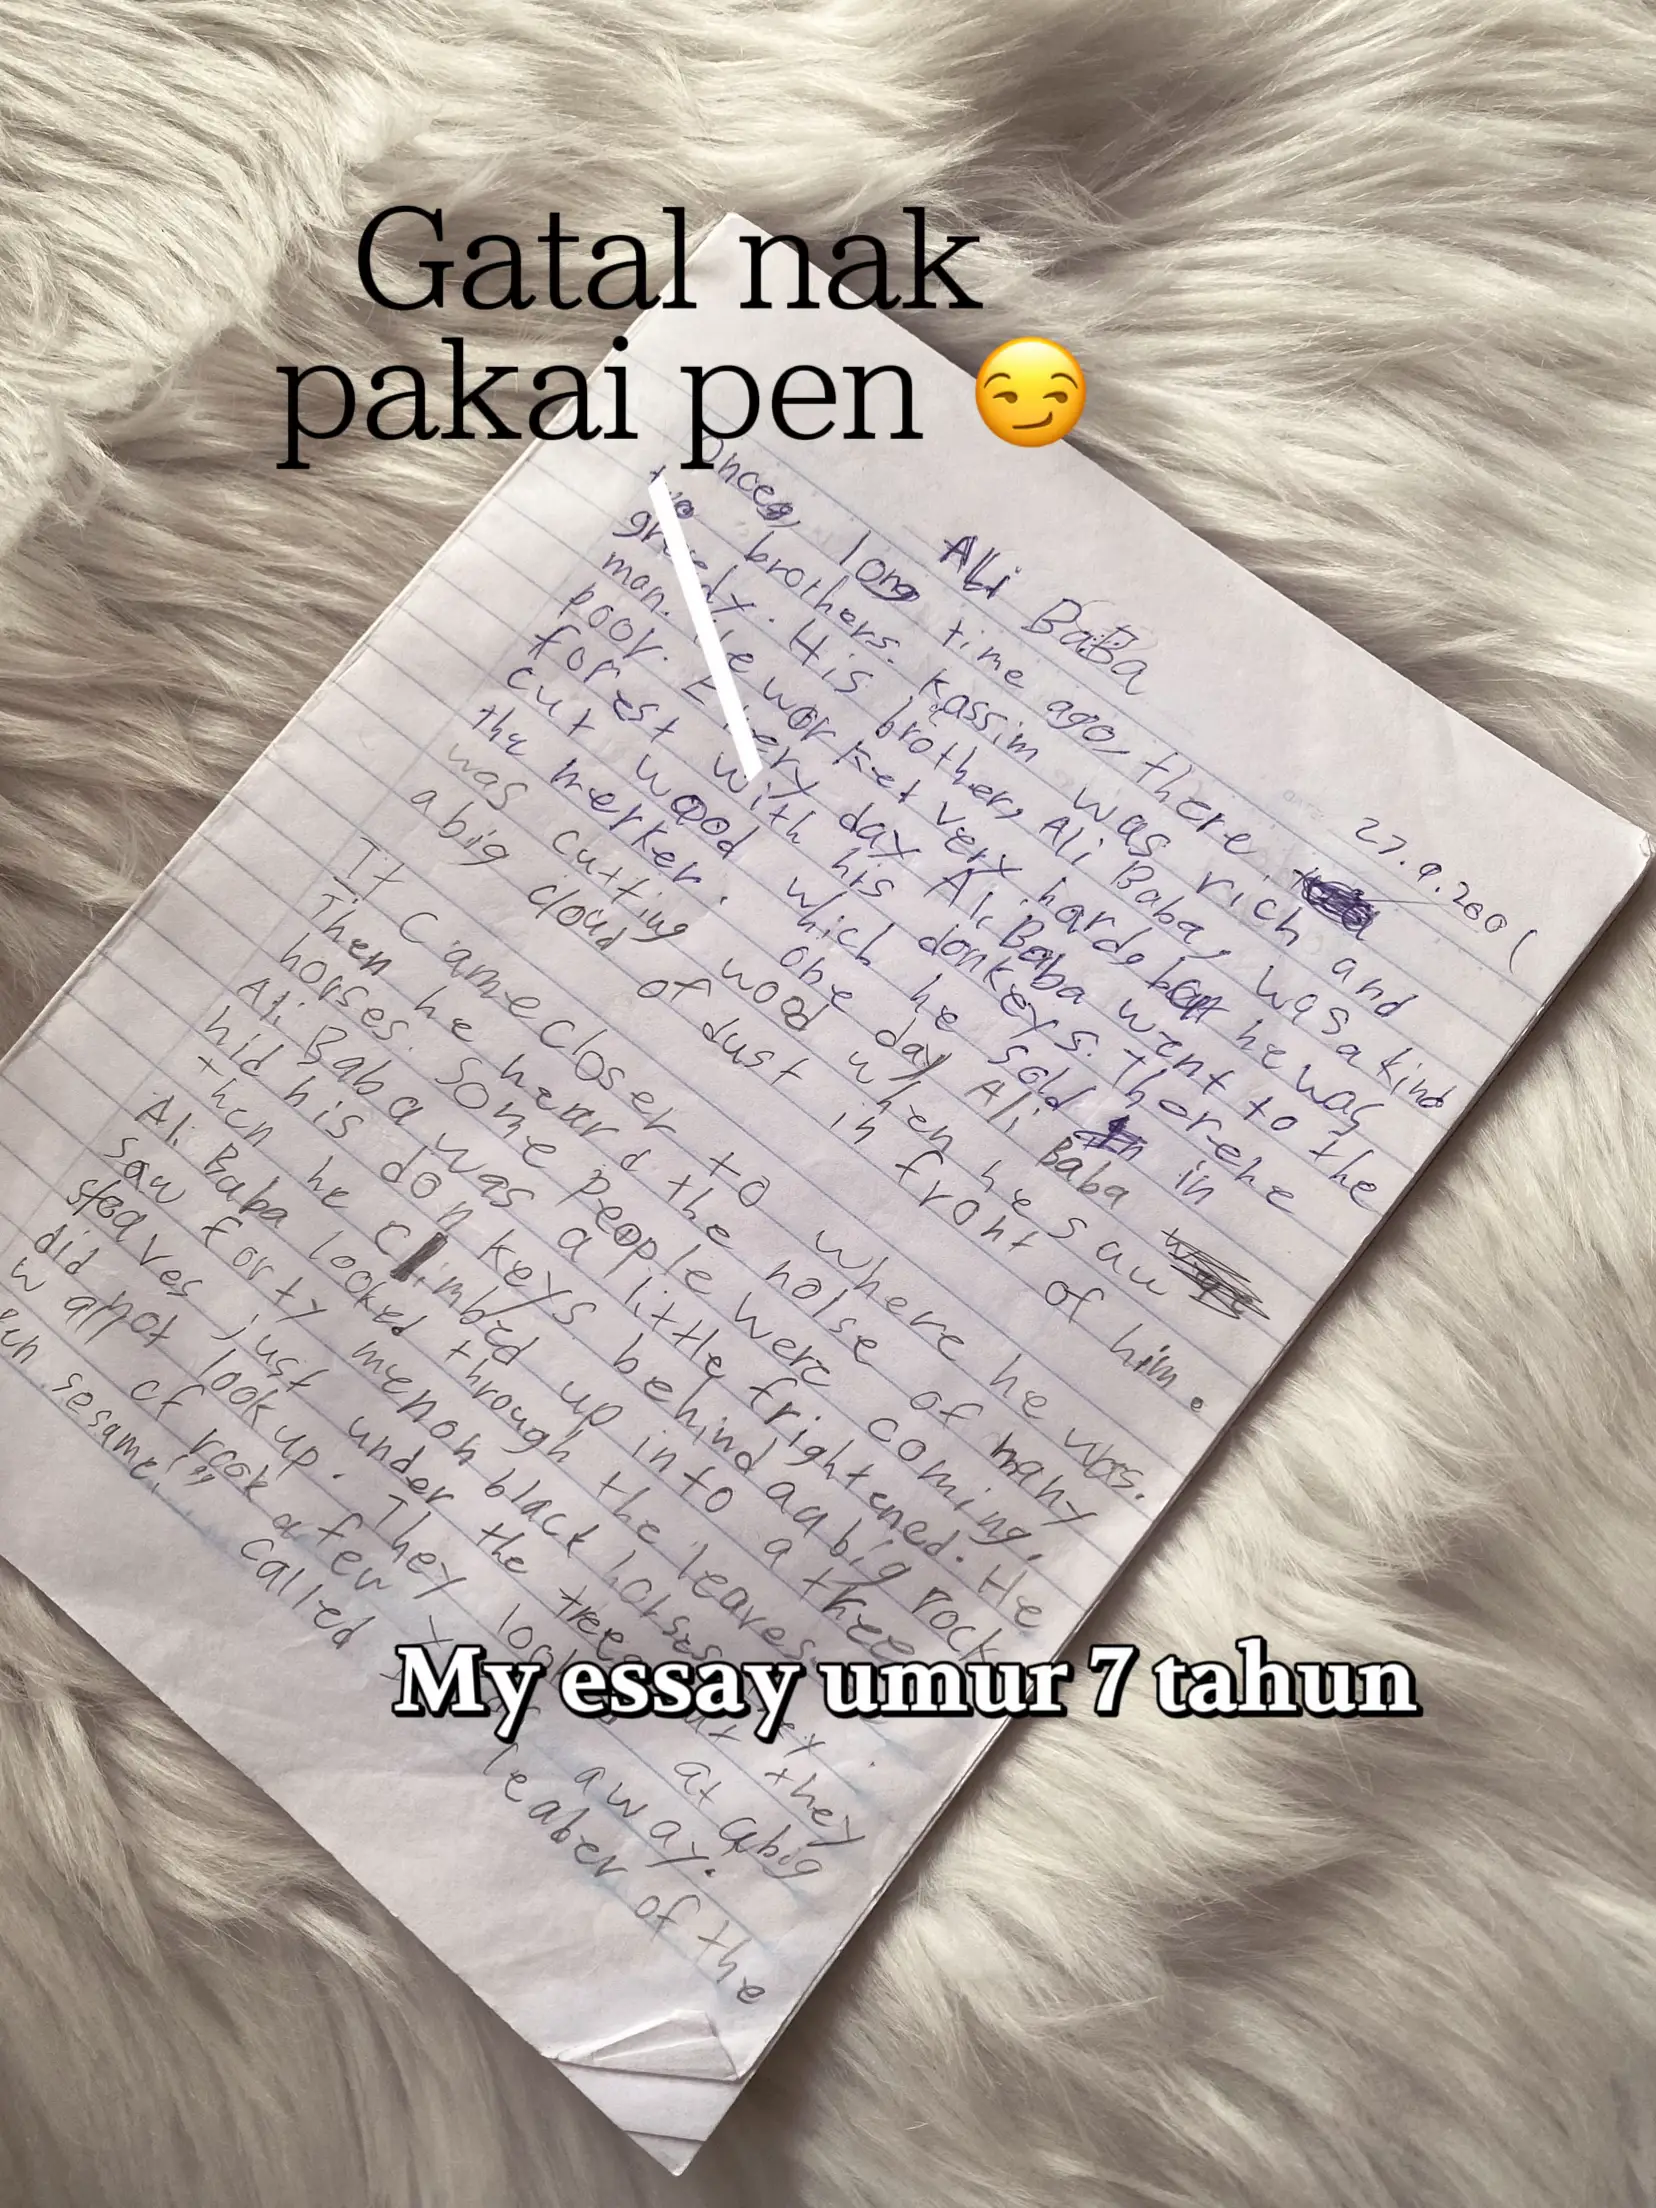 Gatal nak
pakai pen 😏
27.9.2001
Ali BaBa
long time ago, there
two brothers. Kassim was rich and
greedy. His brother, Ali Baba, was a kind
man. He worket very hard, he was
poor. Every day Ali Baba went to the
forest with his donkeys. There he
cut wood which he sold in
the merker. one day Ali Baba
was cutting wood when he saw
a big cloud of dust in front of him.
It Came closer to where he was.
Then he heard the noise of many
horses. Some people were coming.
Ali Baba was a little frightened. He
hid his donkeys behind a big rock
then he climbed up into a
Ali Baba looked through the leaves.
saw forty men on black horses
just under the they
did not look up. They at a big
w all of rock a few away.
called leaber of the
sesame!"
My essay umur 7 tahun